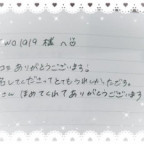 WO1019 様 へ
ありがとうございます!
してくださってとてもうれしかったです。
さん ほめてくれてありがとうございます